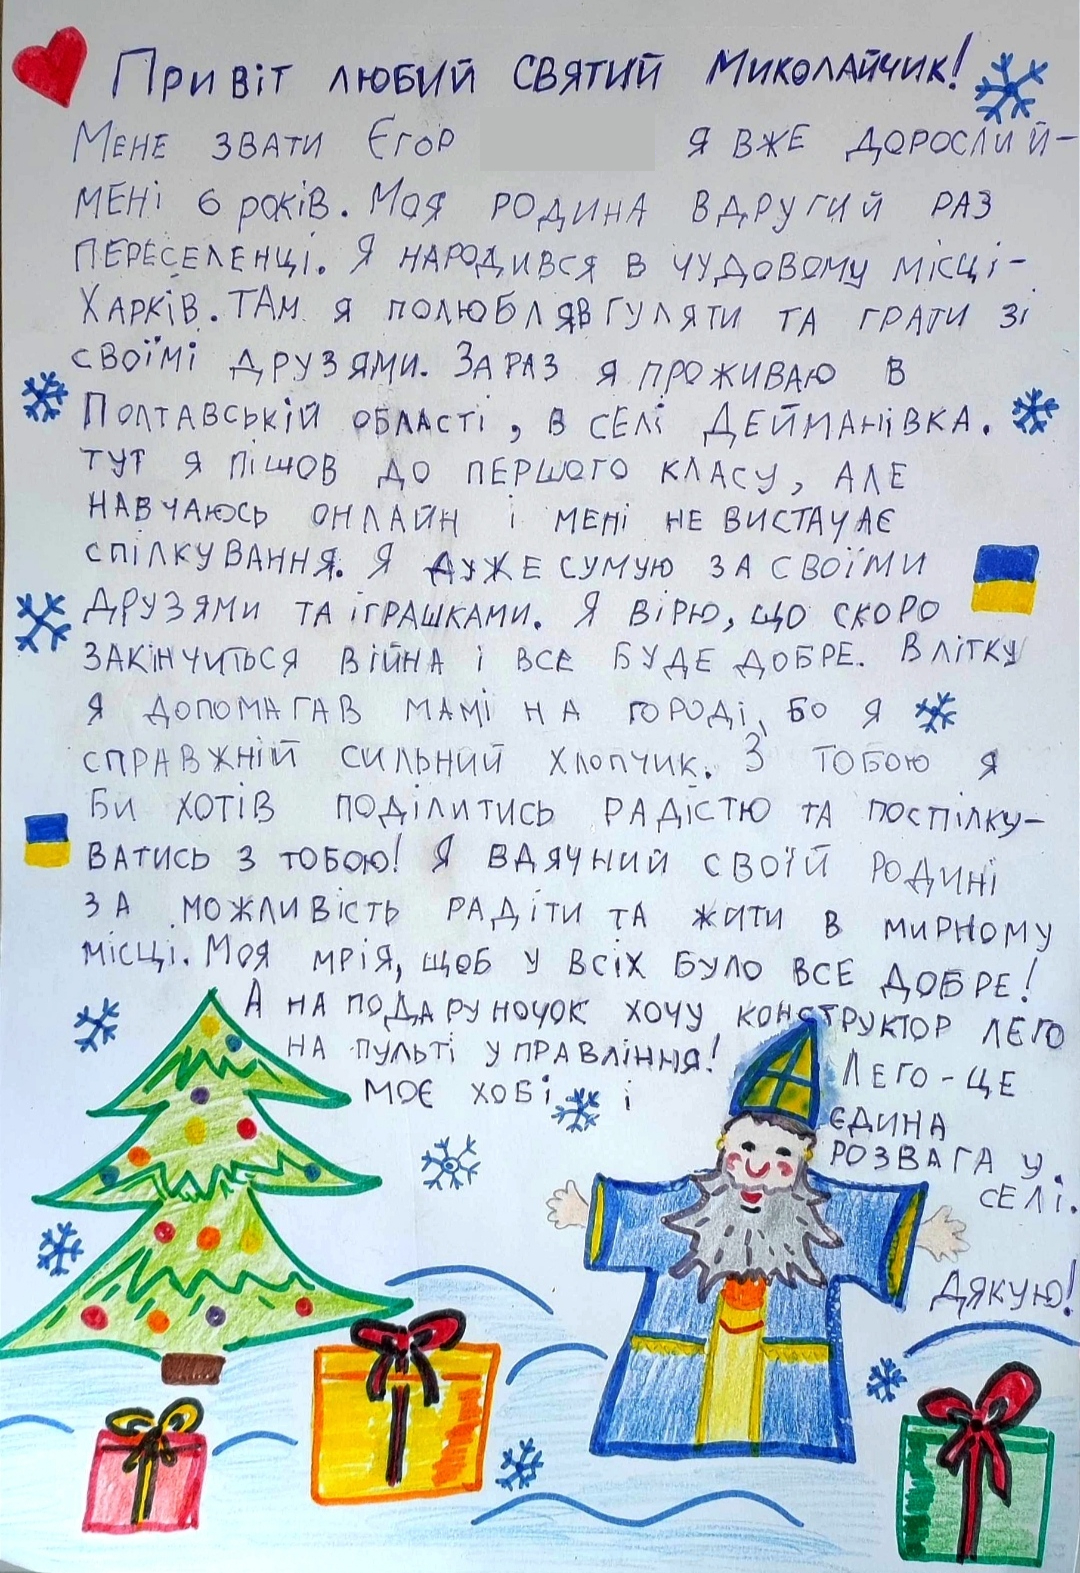 Привіт любий святий Миколайчик!
Мене звати Єгор я вже дорослий-
мені 6 років. Моя родина вдругий раз
переселенці. Я народився в чудовому місці-
Харків. Там я полюбляв гуляти та грати зі
своїмі друзями. Зараз я проживаю в
Полтавській області, в селі Дейманівка.
Тут я пішов до першого класу, але
навчаюсь онлайн і мені не вистачає
спілкування. Я дуже сумую за своїми
друзями та іграшками. Я вірю, що скоро
закінчиться війна і все буде добре. Влітку
я допомагав мамі на городі, бо я
справжній сильний хлопчик. З тобою я
би хотів поділитись радістю та поспілку-
ватись з тобою! Я вдячний своїй родині
за можливість радіти та жити в мирному
місці. Моя мрія, щоб у всіх було все добре!
А на подаруночок хочу конструктор лего
на пульті управління!
Лего-це
моє хобі і
єдина
розвага у
селі.
Дякую!